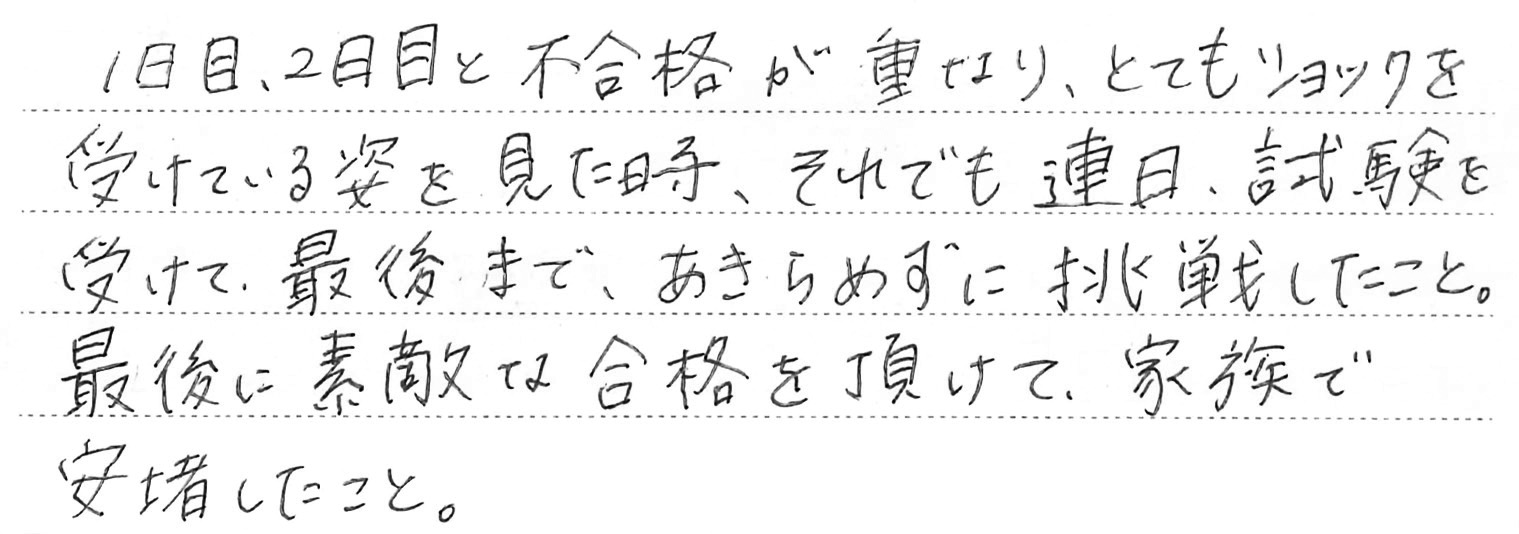 1日目、2日目と不合格が重なり、とてもショックを
受けている姿を見た時、それでも連日、試験を
受けて、最後まで、あきらめずに挑戦したこと。
最後に素敵な合格を頂けて、家族で
安堵したこと。